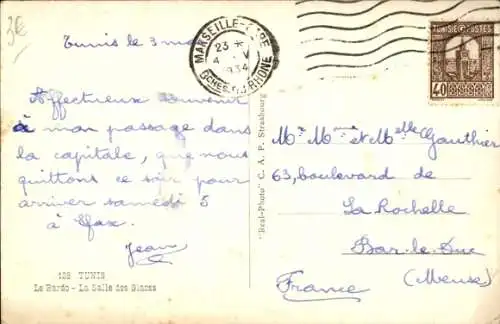 3€
Tunis le 3 mai
Affectueux souvenir
à mon passage dans
la capitale, que nous
quittons ce soir pour
arriver samedi 5
à Sfax.
Jean
128 TUNIS
Le Bardo - La Salle des Glaces
"Real-Photo" C. A. P. Strasbourg
MARSEILLE-GARE
23 *
4 V
1934
BCHES DU RHONE
TUNISIE POSTES
40
Mr Mme et Melle Gauthier
63, boulevard de
La Rochelle
Bar-le-Duc
(Meuse)
France